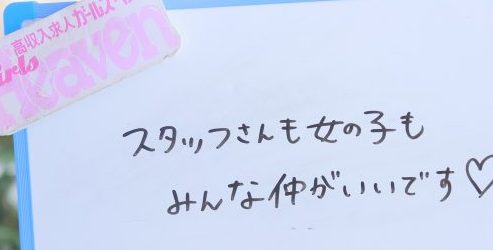 高収入求人ガールズヘ
Girls
Heaven
スタッフさんも女の子も
みんな仲がいいです♡